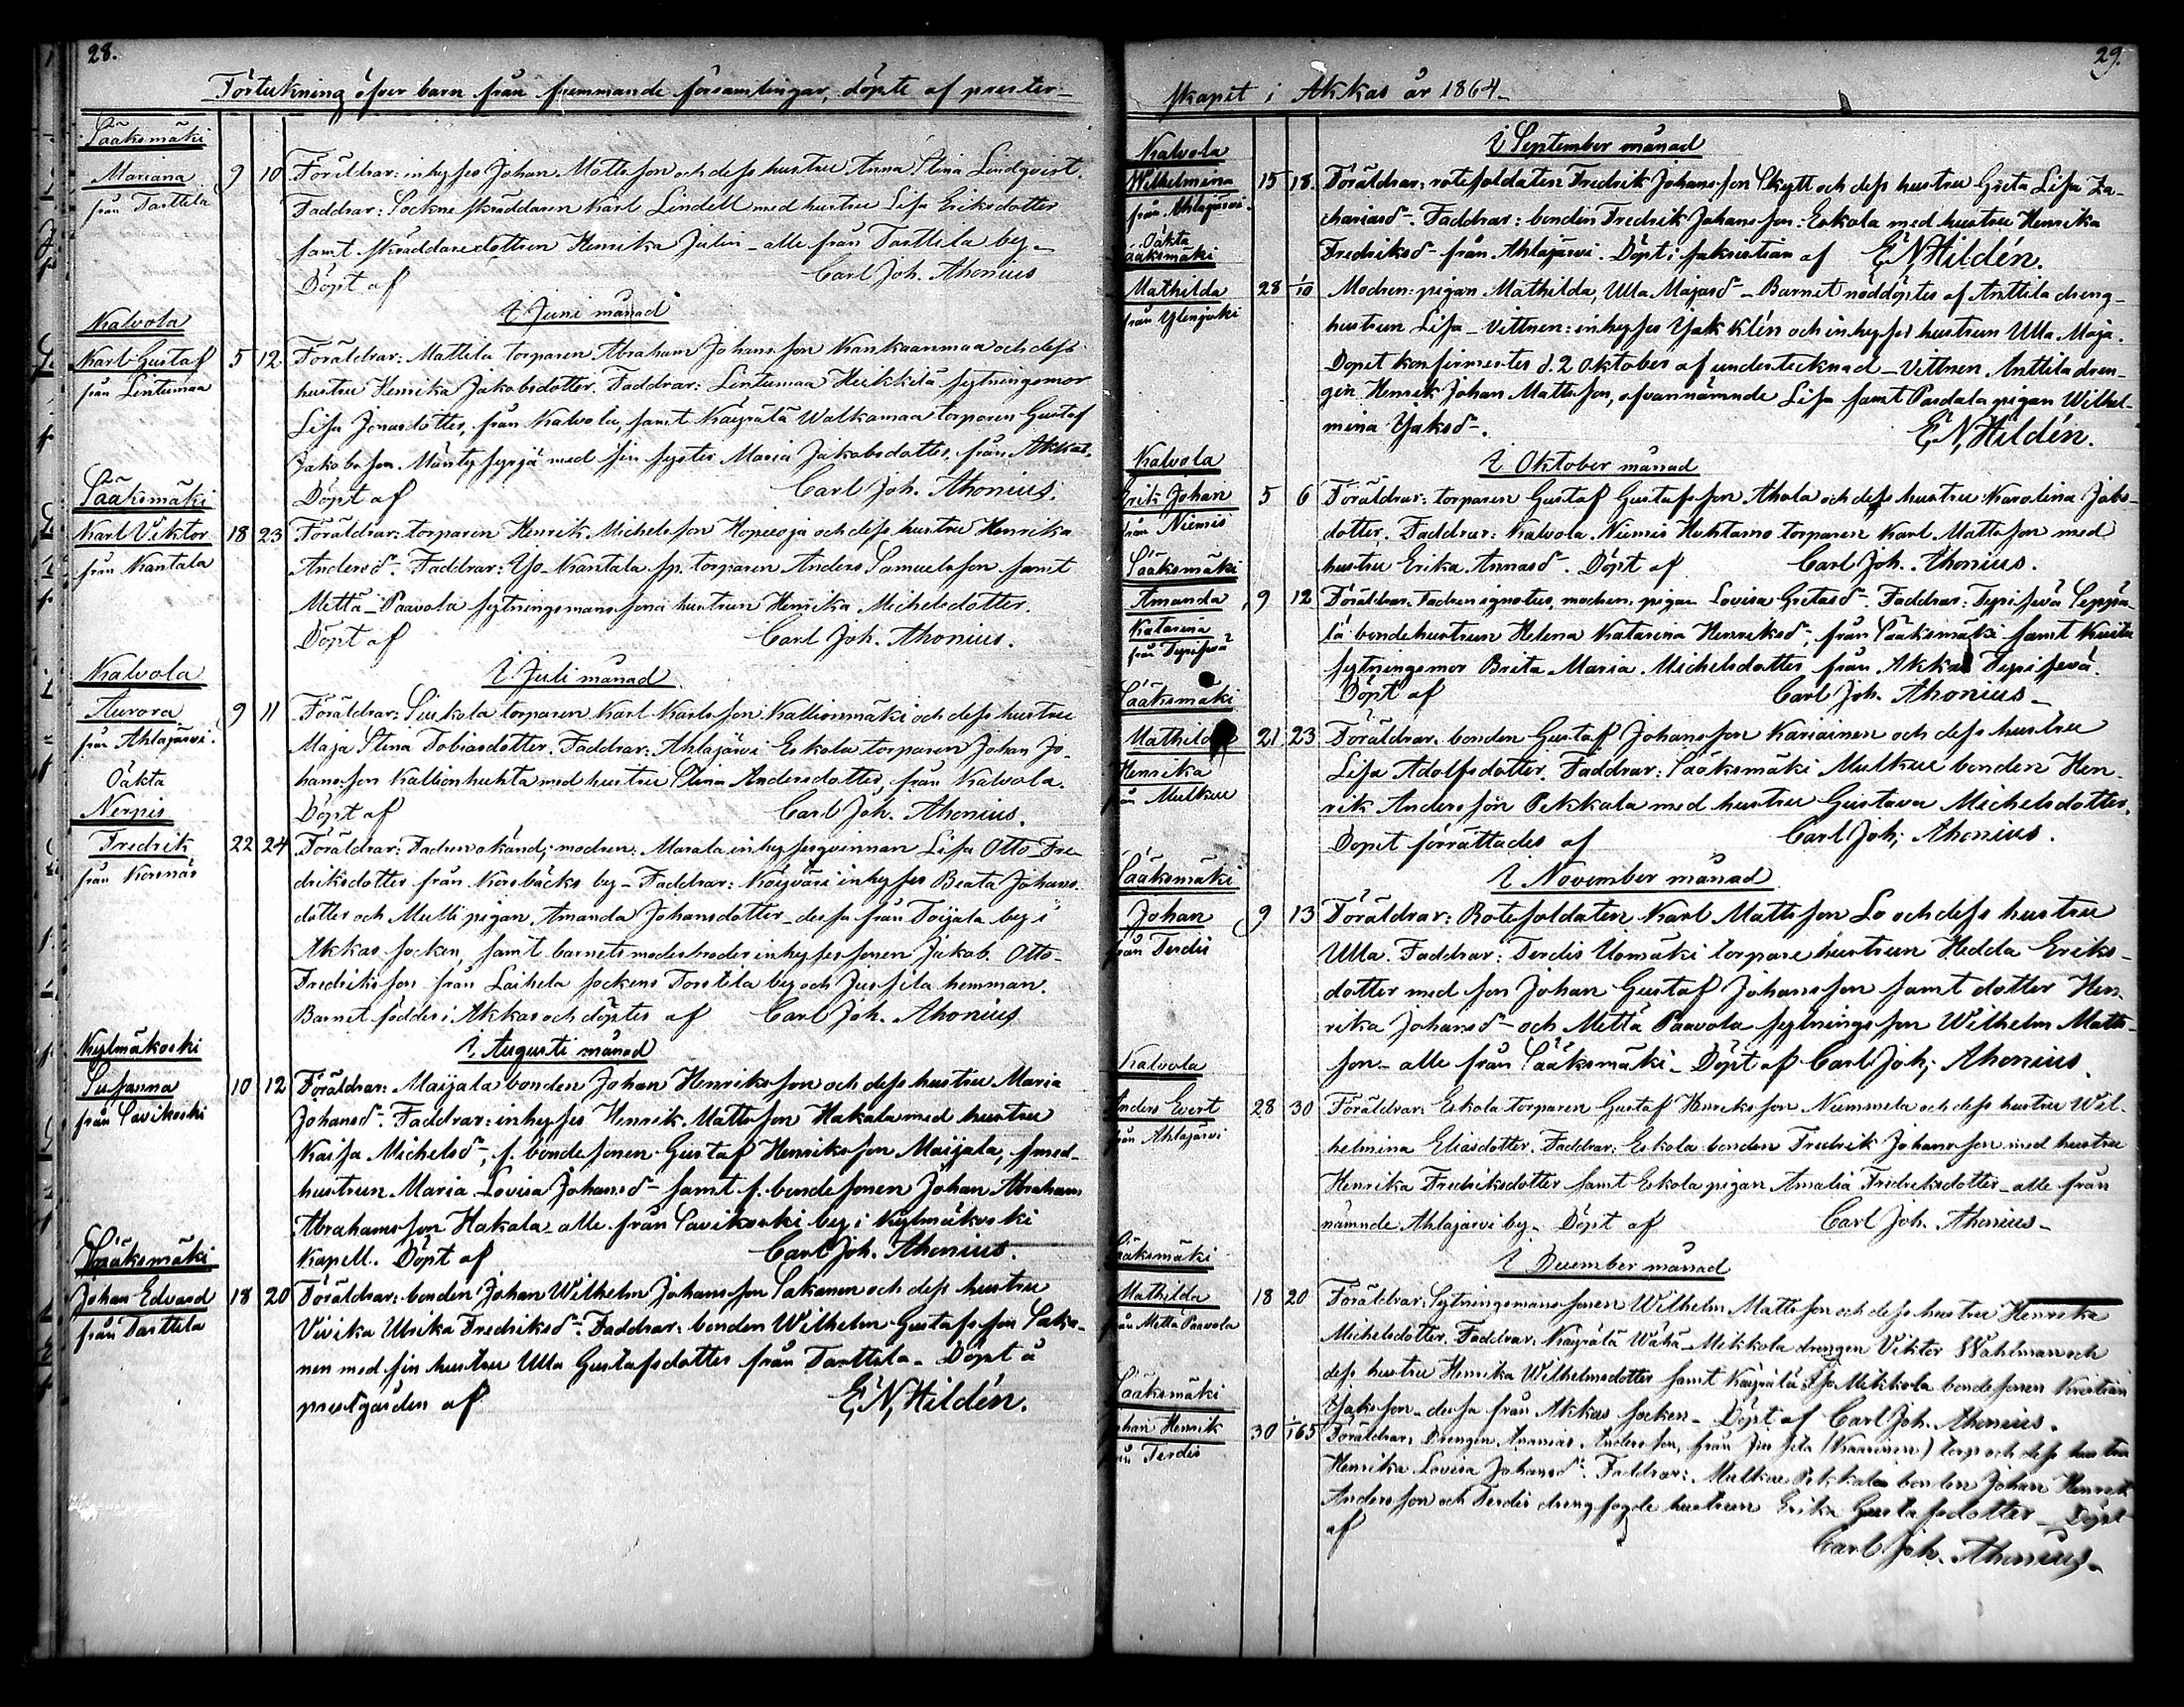 28.
Förtekning öfver barn från fremmande församlingar, döpte af prester-
Sääksmäki
Mariana 9 10 Föräldrar: inhyses Johan Mattsson och dess hustru Anna Stina Lindqvist.
från Tarttila Faddrar: Sockne skräddaren Karl Lindell med hustru Lisa Eriksdotter
samt skräddaredottren Henrika Julin - alle från Tarttila by -
Döpt af Carl Joh. Ahonius
I Juni månad
Kalvola
Karl Gustaf 5 12. Föräldrar: Mattila torparen Abraham Johansson Kankaanmaa och dess
från Lintumaa hustru Henrika Jakobsdotter. Faddrar: Lintumaa Heikkilä sytningsmor
Lisa Jonasdotter, från Kalvola, samt Käyrälä Walkamaa torparen Gustaf
Jakobsson Mäntysyrjä med sin syster Maria Jakobsdotter, från Akkas.
Döpt af Carl Joh. Ahonius.
Sääksmäki
Karl Viktor 18 23 Föräldrar: torparen Henrik Michelsson Hopeeoja och dess hustru Henrika
från Kantala Andersd-. Faddrar: Yo-Kantala sp. torparen Anders Samuelsson samt
Metta-Paavola sytningsmanssons hustrun Henrika Michelsdotter.
Döpt af Carl Joh. Ahonius.
I Juli månad
Kalvola
Aurora 9 11 Föräldrar: Siukola torparen Karl Karlsson Kallionmäki och dess hustru
från Ahlajärvi. Maja Stina Tobiasdotter. Faddrar: Ahlajärvi Eskola torparen Johan Jo-
hansson Kallionhuhta med hustru Stina Andersdotter, från Kalvola.
Döpt af Carl Joh. Ahonius.
Oäkta
Nerpis
Fredrik 22 24 Föräldrar: Fadren okänd; modren Marala inhysesqvinnan Lisa Otto Fre-
från Korsnäs driksdotter från Korsbäcks by - Faddrar: inhyses Beata Johans-
dotter och Multi pigan Amanda Johansdotter - dessa från Toijala by i
Akkas socken, samt barnets moderbroder inhysessonen Jakob Otto-
Fredriksson från Laihela sockens by och Jussila hemman.
Barnet föddes i Akkas och döptes af Carl Joh. Ahonius
I Augusti månad
Kylmäkoski
Susanna 10 12 Föräldrar: Maijala bonden Johan Henriksson och dess hustru Maria
från Savikoski Johansd-. Faddrar: inhyses Henrik Mattsson Hakala med hustru
Kaisa Michelsd-, f. bondesonen Gustaf Henriksson Maijala, smed-
hustrun Maria Lovisa Johansd- samt f. bondesonen Johan Abraham
Abrahamsson Hakala - alle från Savikoski by i Kylmäkoski
Kapell. Döpt af Carl Joh. Ahonius.
Sääksmäki
Johan Edvard 18 20 Föräldrar: bonden Johan Wilhelm Johansson Sakanen och dess hustru
från Tarttila Vivika Ulrika Fredriksd-. Faddrar: bonden Wilhelm Gustafsson Saka-
nen med sin hustru Ulla Gustafsdotter från Tarttila - Döpt å
prestgården af E. N. Hildén.
29.
skapet i Akkas år 1864-
I September månad
Kalvola
Wilhelmina 15 18. Föräldrar: rotesoldaten Fredrik Johansson Skytt och dess hustru Greta Lisa Za-
från Ahlajärvi. chariasd-. Faddrar: bonden Fredrik Johansson Eskola med hustru Henrika
Fredriksd- från Ahlajärvi. Döpt i sakristian af E. N. Hildén.
Oäkta
Sääksmäki
Mathilda 28 1/10 Modren: pigan Mathilda, Ulla Majasd - Barnet nöddöptes af Anttila dreng-
från hustrun Lisa - Vittnen: inhyses Isak Klén och inhyses hustrun Ulla Maja.
Dopet konfirmertes d. 2 Oktober af undertecknad - Vittnen Anttila dren-
gen Henrik Johan Mattsson, ofvannämnde Lisa samt Pardala pigan Wilhel-
mina Isaksd-. E. N. Hildén.
I Oktober månad
Kalvola
Erik Johan 5 6 Föräldrar: torparen Gustaf Gustafsson Ahola och dess hustru Karolina Jobs-
från Niemis dotter. Faddrar: Kalvola Niemis Huhtamo torparen Karl Mattsson med
hustru Erika Annasd-. Döpt af Carl Joh. Ahonius.
Sääksmäki
Amanda 9 12 Föräldrar: Fadren ignotus, modren pigan Lovisa Gretasd-. Faddrar: Seppä-
Katarina lä bondehustrun Helena Katarina Henriksd-, från Sääksmäki samt
från sytningsmor Brita Maria Michelsdotter från Akkas
Döpt af Carl Joh. Ahonius -
Sääksmäki
Mathilda 21 23 Föräldrar: bonden Gustaf Johansson Kariainen och dess hustru
Henrika Lisa Adolfsdotter. Faddrar: Sääksmäki Mulkue bonden Hen-
från Mulkue rik Andersson Pekkala med hustru Gustava Michelsdotter.
Dopet förrättades af Carl Joh; Ahonius.
I November månad
Sääksmäki
Johan 9 13 Föräldrar: Rotesoldaten Karl Mattsson Lo och dess hustru
från Terdis Ulla. Faddrar: Terdis Uomäki torpare hustrun Hedda Eriks-
dotter med son Johan Gustaf Johansson samt dotter Hen-
rika Johansd- och Metta Paavola sytningsson Wilhelm Matts-
son - alle från Sääksmäki - Döpt af Carl Joh; Ahonius.
Kalvola
Anders Evert 28 30 Föräldrar: Eskola torparen Gustaf Henriksson Nummela och dess hustru Wil-
från Ahlajärvi helmina Eliasdotter. Faddrar: Eskola bonden Fredrik Johansson med hustru
Henrika Fredriksdotter samt Eskola pigan Amalia Fredriksdotter - alle från
nämnde Ahlajärvi by - Döpt af Carl Joh. Ahonius -
I December månad
Sääksmäki
Mathilda 18 20 Föräldrar: Sytningsmanssonen Wilhelm Mattsson och dess hustru Henrika
från Metta Paavola Michelsdotter. Faddrar: Käyrälä Wähä-Mikkola drengen Viktor Wahlman och
dess hustru Henrika Wilhelmsdotter samt Käyrälä Iso Mikkola bondesonen Kristian
Isaksson - dessa från Akkas socken - Döpt af Carl Joh. Ahonius.
Sääksmäki
Johan Henrik 30 1/1 65 Föräldrar: Drengen Ananias Andersson, från Jussila (Kaarinen) torp och dess hustru
från Terdis Henrika Lovisa Johansd-. Faddrar: Mulkue Pekkala bonden Johan Henrik
Andersson och Terdis drengfogde hustrun Erika Gustafsdotter - Döpt
af Carl Joh. Ahonius -